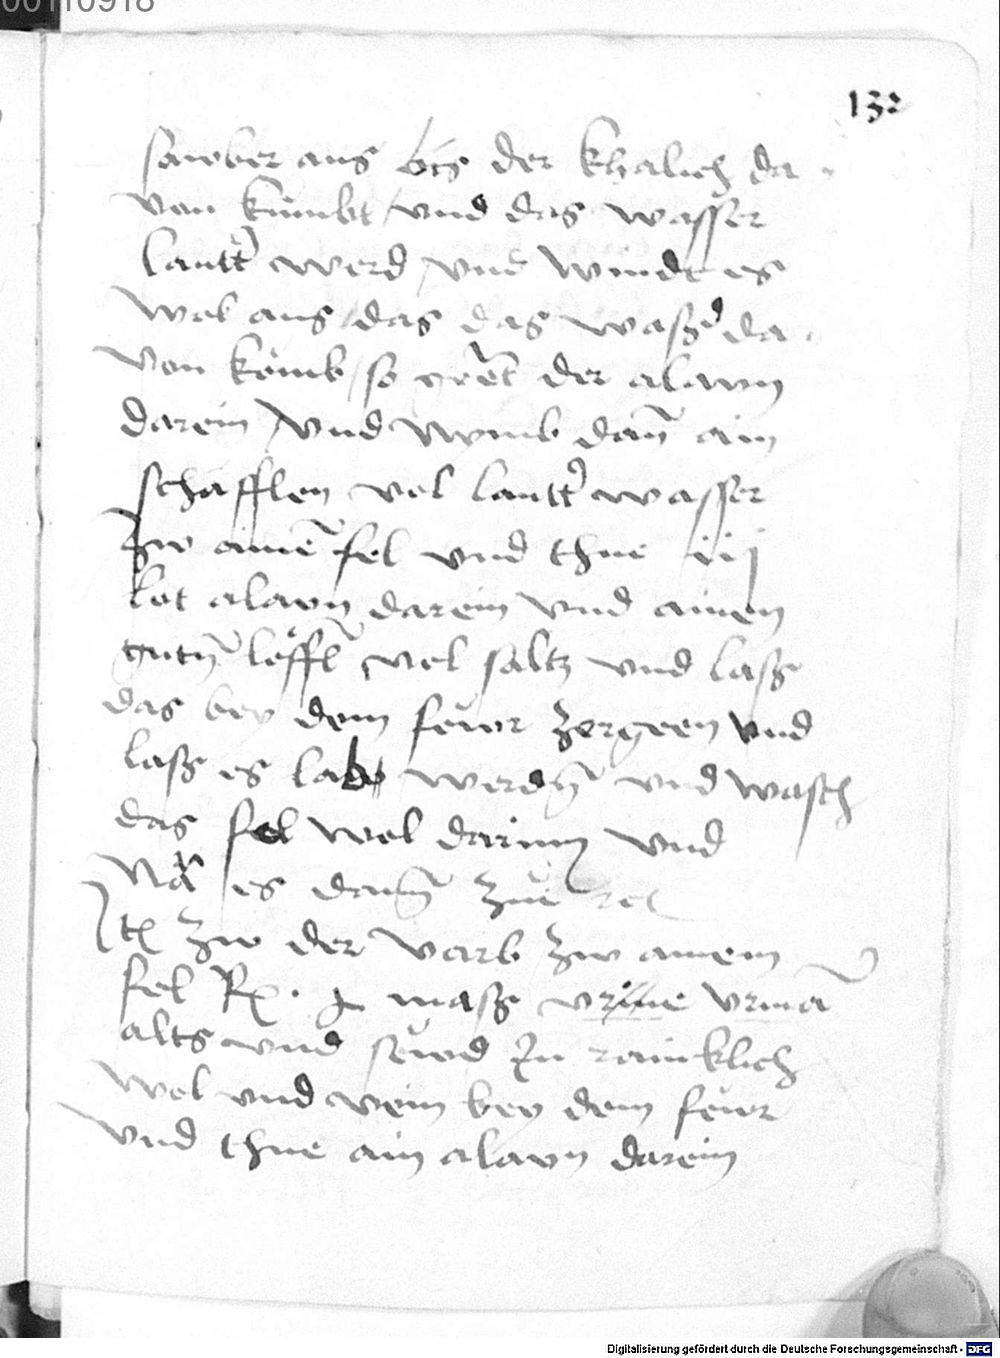 00110918
132
sawber aus bis der khalich da
von kumbt und das wasser
lautter werd und windt es
wol aus das das wasser da
von kömb so der alawn
darein und nymb dann ain
schäfflen vol lautter wasser
zw ainem fel und thue iij
lot alawn darein und ainen
guten löffl vol saltz und lasß
das bey dem fewr zergeen und
lasß es lab werden und wasch
das fel wol darinn und
es dann
Item zw der varb zw ainem
fel Rx. maß urine
alts und sewd In rainklich
wol und bey dem fewr
und thue ain alawn darein
Digitalisierung gefördert durch die Deutsche Forschungsgemeinschaft - DFG